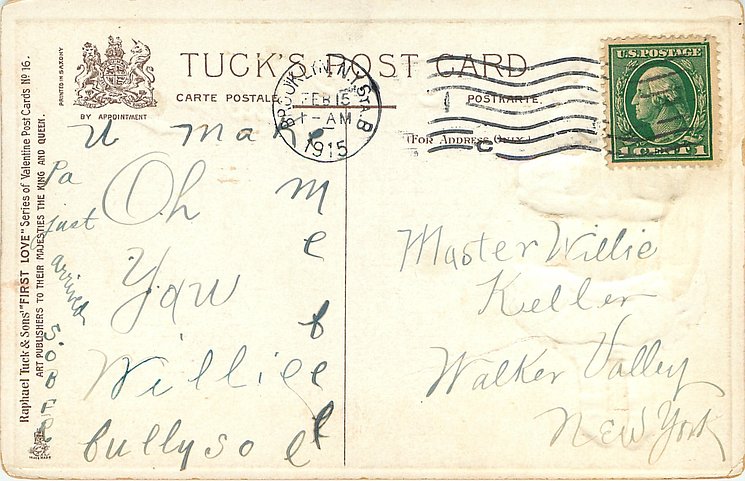 TUCK'S POST CARD
CARTE POSTALE
POSTKARTE.
(FOR ADDRESS ONLY.)
PRINTED IN SAXONY
BY APPOINTMENT
Raphael Tuck & Sons' "FIRST LOVE" Series of Valentine Post Cards Nº 16.
ART PUBLISHERS TO THEIR MAJESTIES THE KING AND QUEEN.
BROOKLYN, N.Y. STA. B
FEB 15
1-AM
1915
C
U.S. POSTAGE
1 CENT 1
Oh
You
Willie
U make
me feel
bully so
Pa
just
arrived
Master Willie
Keller
Walker Valley
New York